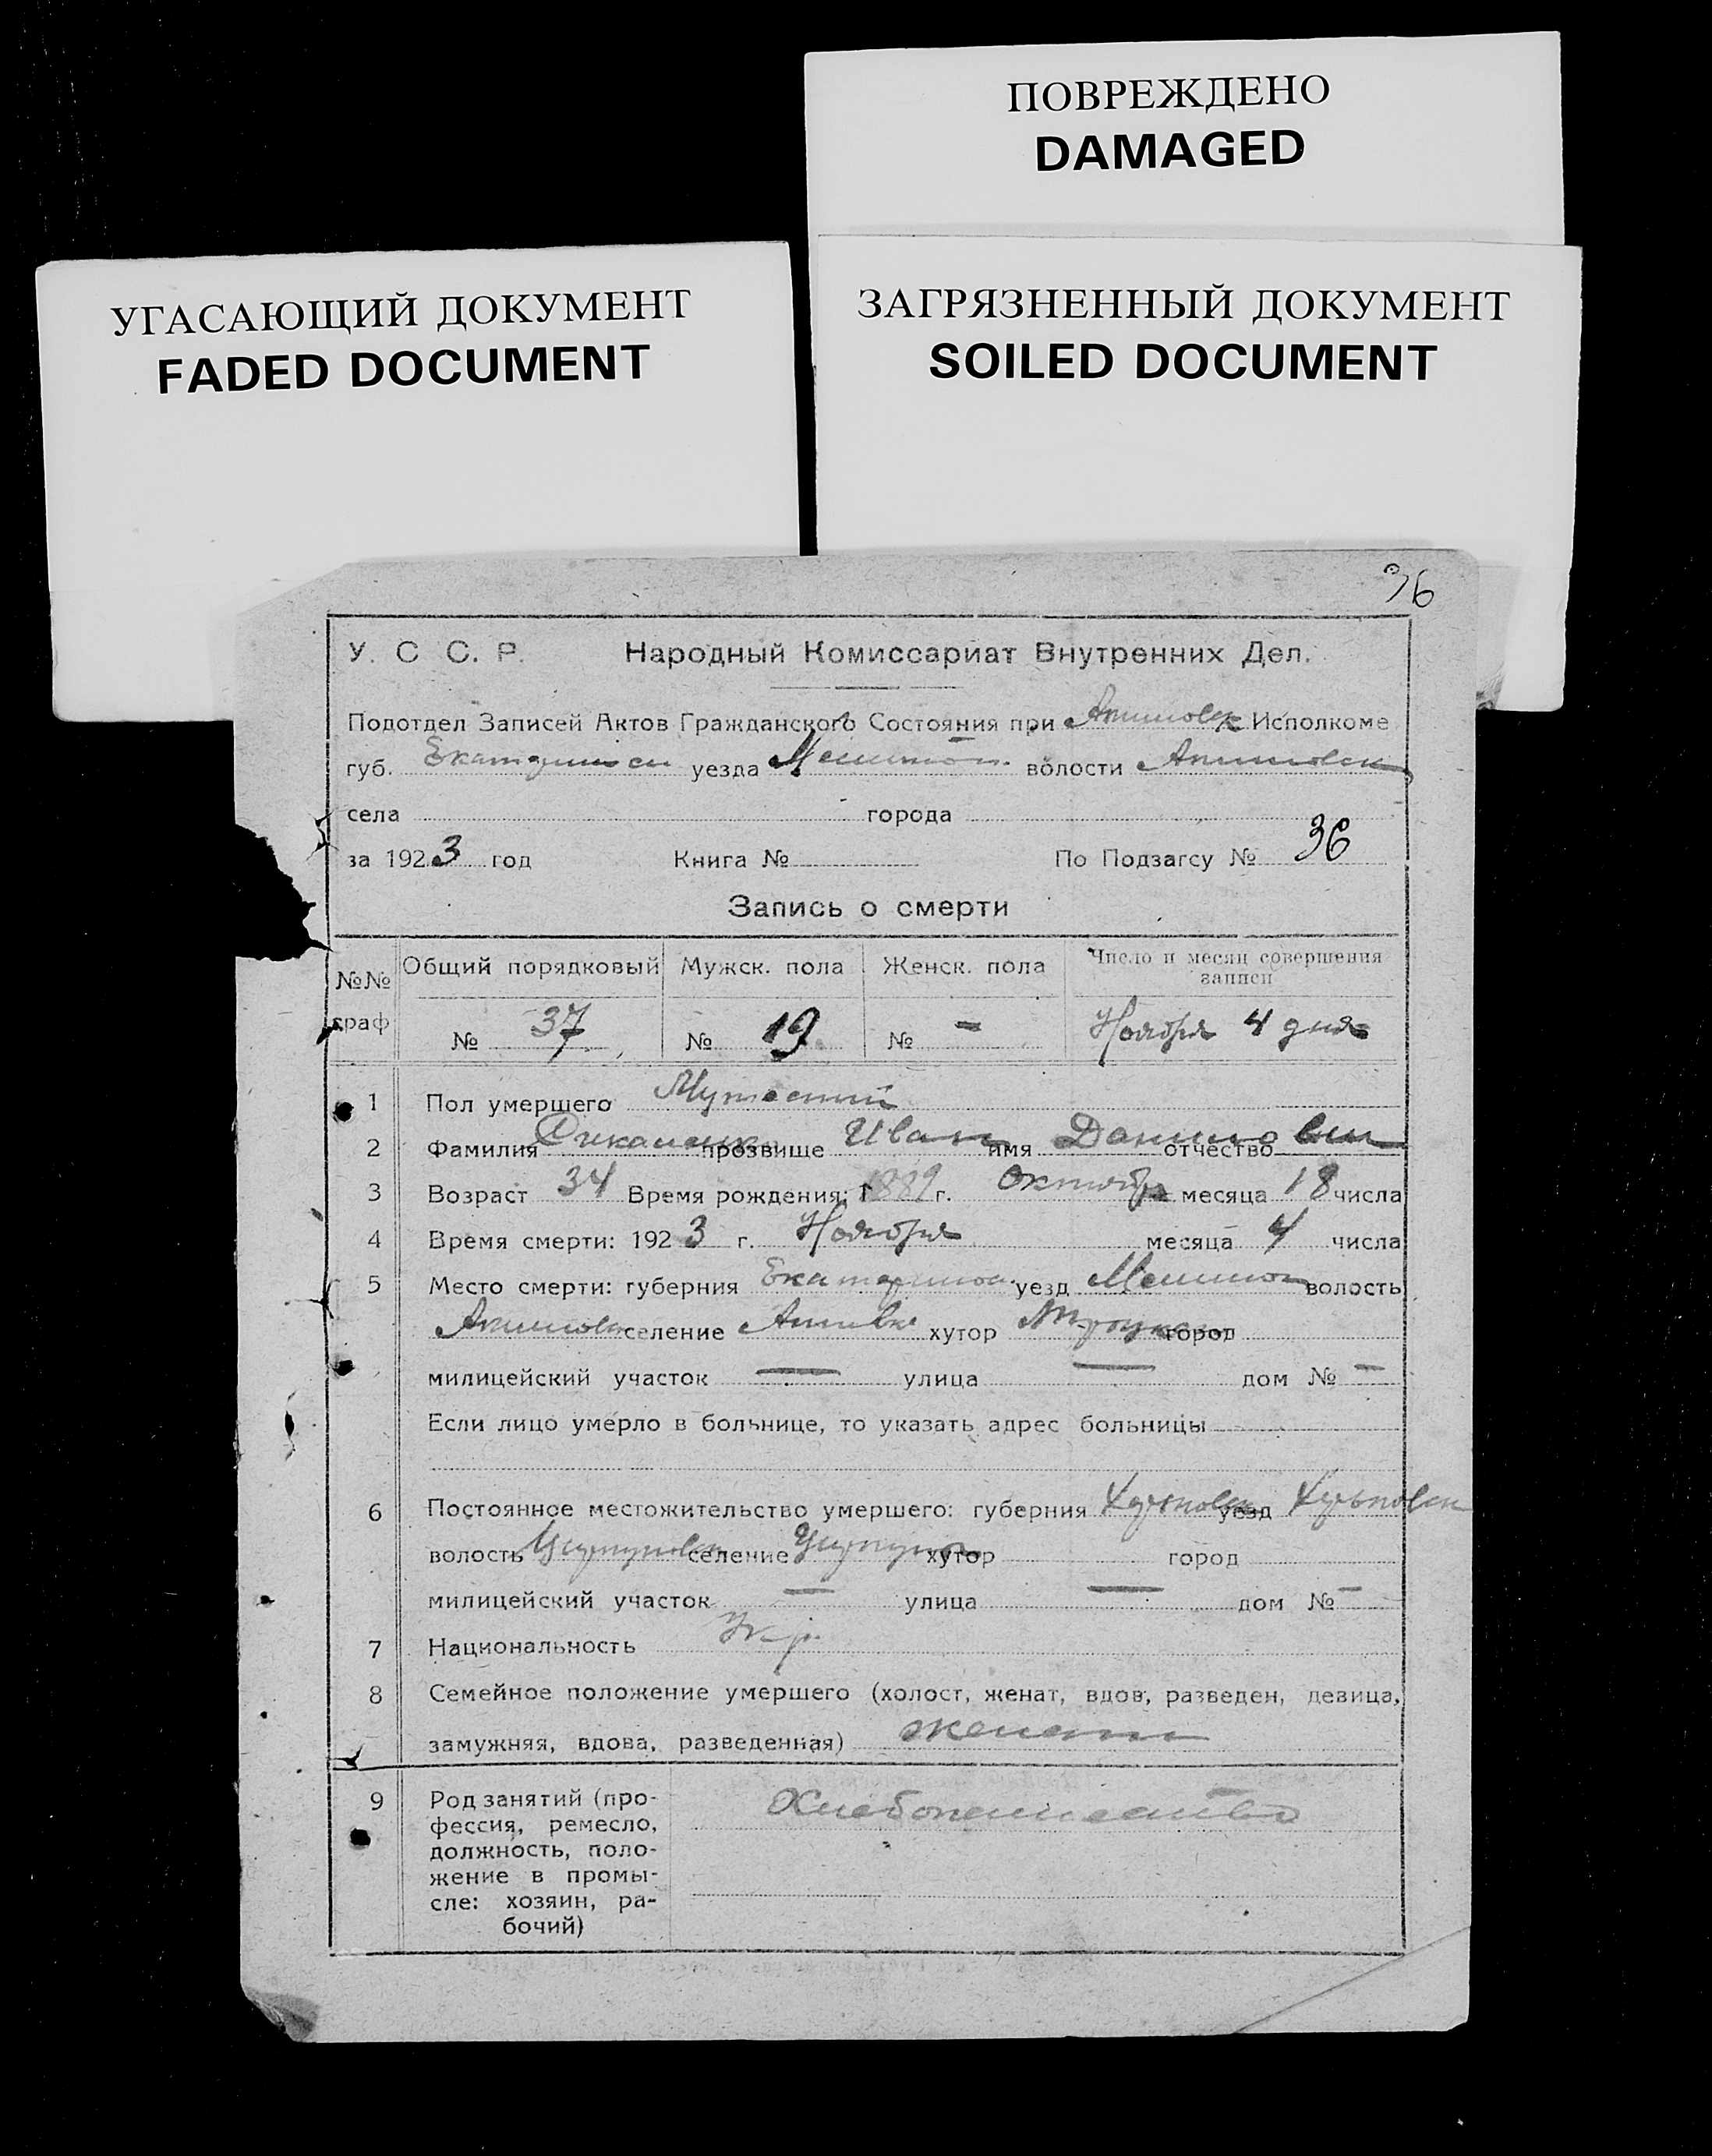 ПОВРЕЖДЕНО
DAMAGED
УГАСАЮЩИЙ ДОКУМЕНТ
FADED DOCUMENT
ЗАГРЯЗНЕННЫЙ ДОКУМЕНТ
SOILED DOCUMENT
36
У. С С. Р. Народный Комиссариат Внутренних Дел.
Подотдел Записей Актов Гражданского Состояния при Акимовск Исполкоме
губ. уезда волости Акимовск
села города
за 1923 год Книга № По Подзагсу № 36
Запись о смерти
№№ граф Общий порядковый Мужск. пола Женск. пола Число и месяц совершения записи
№ 37 № 19 № - Ноября 4 дня
1 Пол умершего Мужеский
2 Фамилия прозвище Иван имя Данилович отчество
3 Возраст 34 Время рождения: 1889 г. Октября месяца 18 числа
4 Время смерти: 1923 г. Ноября месяца 4 числа
5 Место смерти: губерния Екатеринос уезд Мелитоп волость
Акимовск селение хутор город
милицейский участок — улица — дом № —
Если лицо умерло в больнице, то указать адрес больницы
6 Постоянное местожительство умершего: губерния уезд
волость селение хутор город
милицейский участок — улица — дом № —
7 Национальность Укр.
8 Семейное положение умершего (холост, женат, вдов, разведен, девица,
замужняя, вдова, разведенная) женат
9 Род занятий (про-
фессия, ремесло,
должность, поло-
жение в промы-
сле: хозяин, ра-
бочий)
Хлебопашество